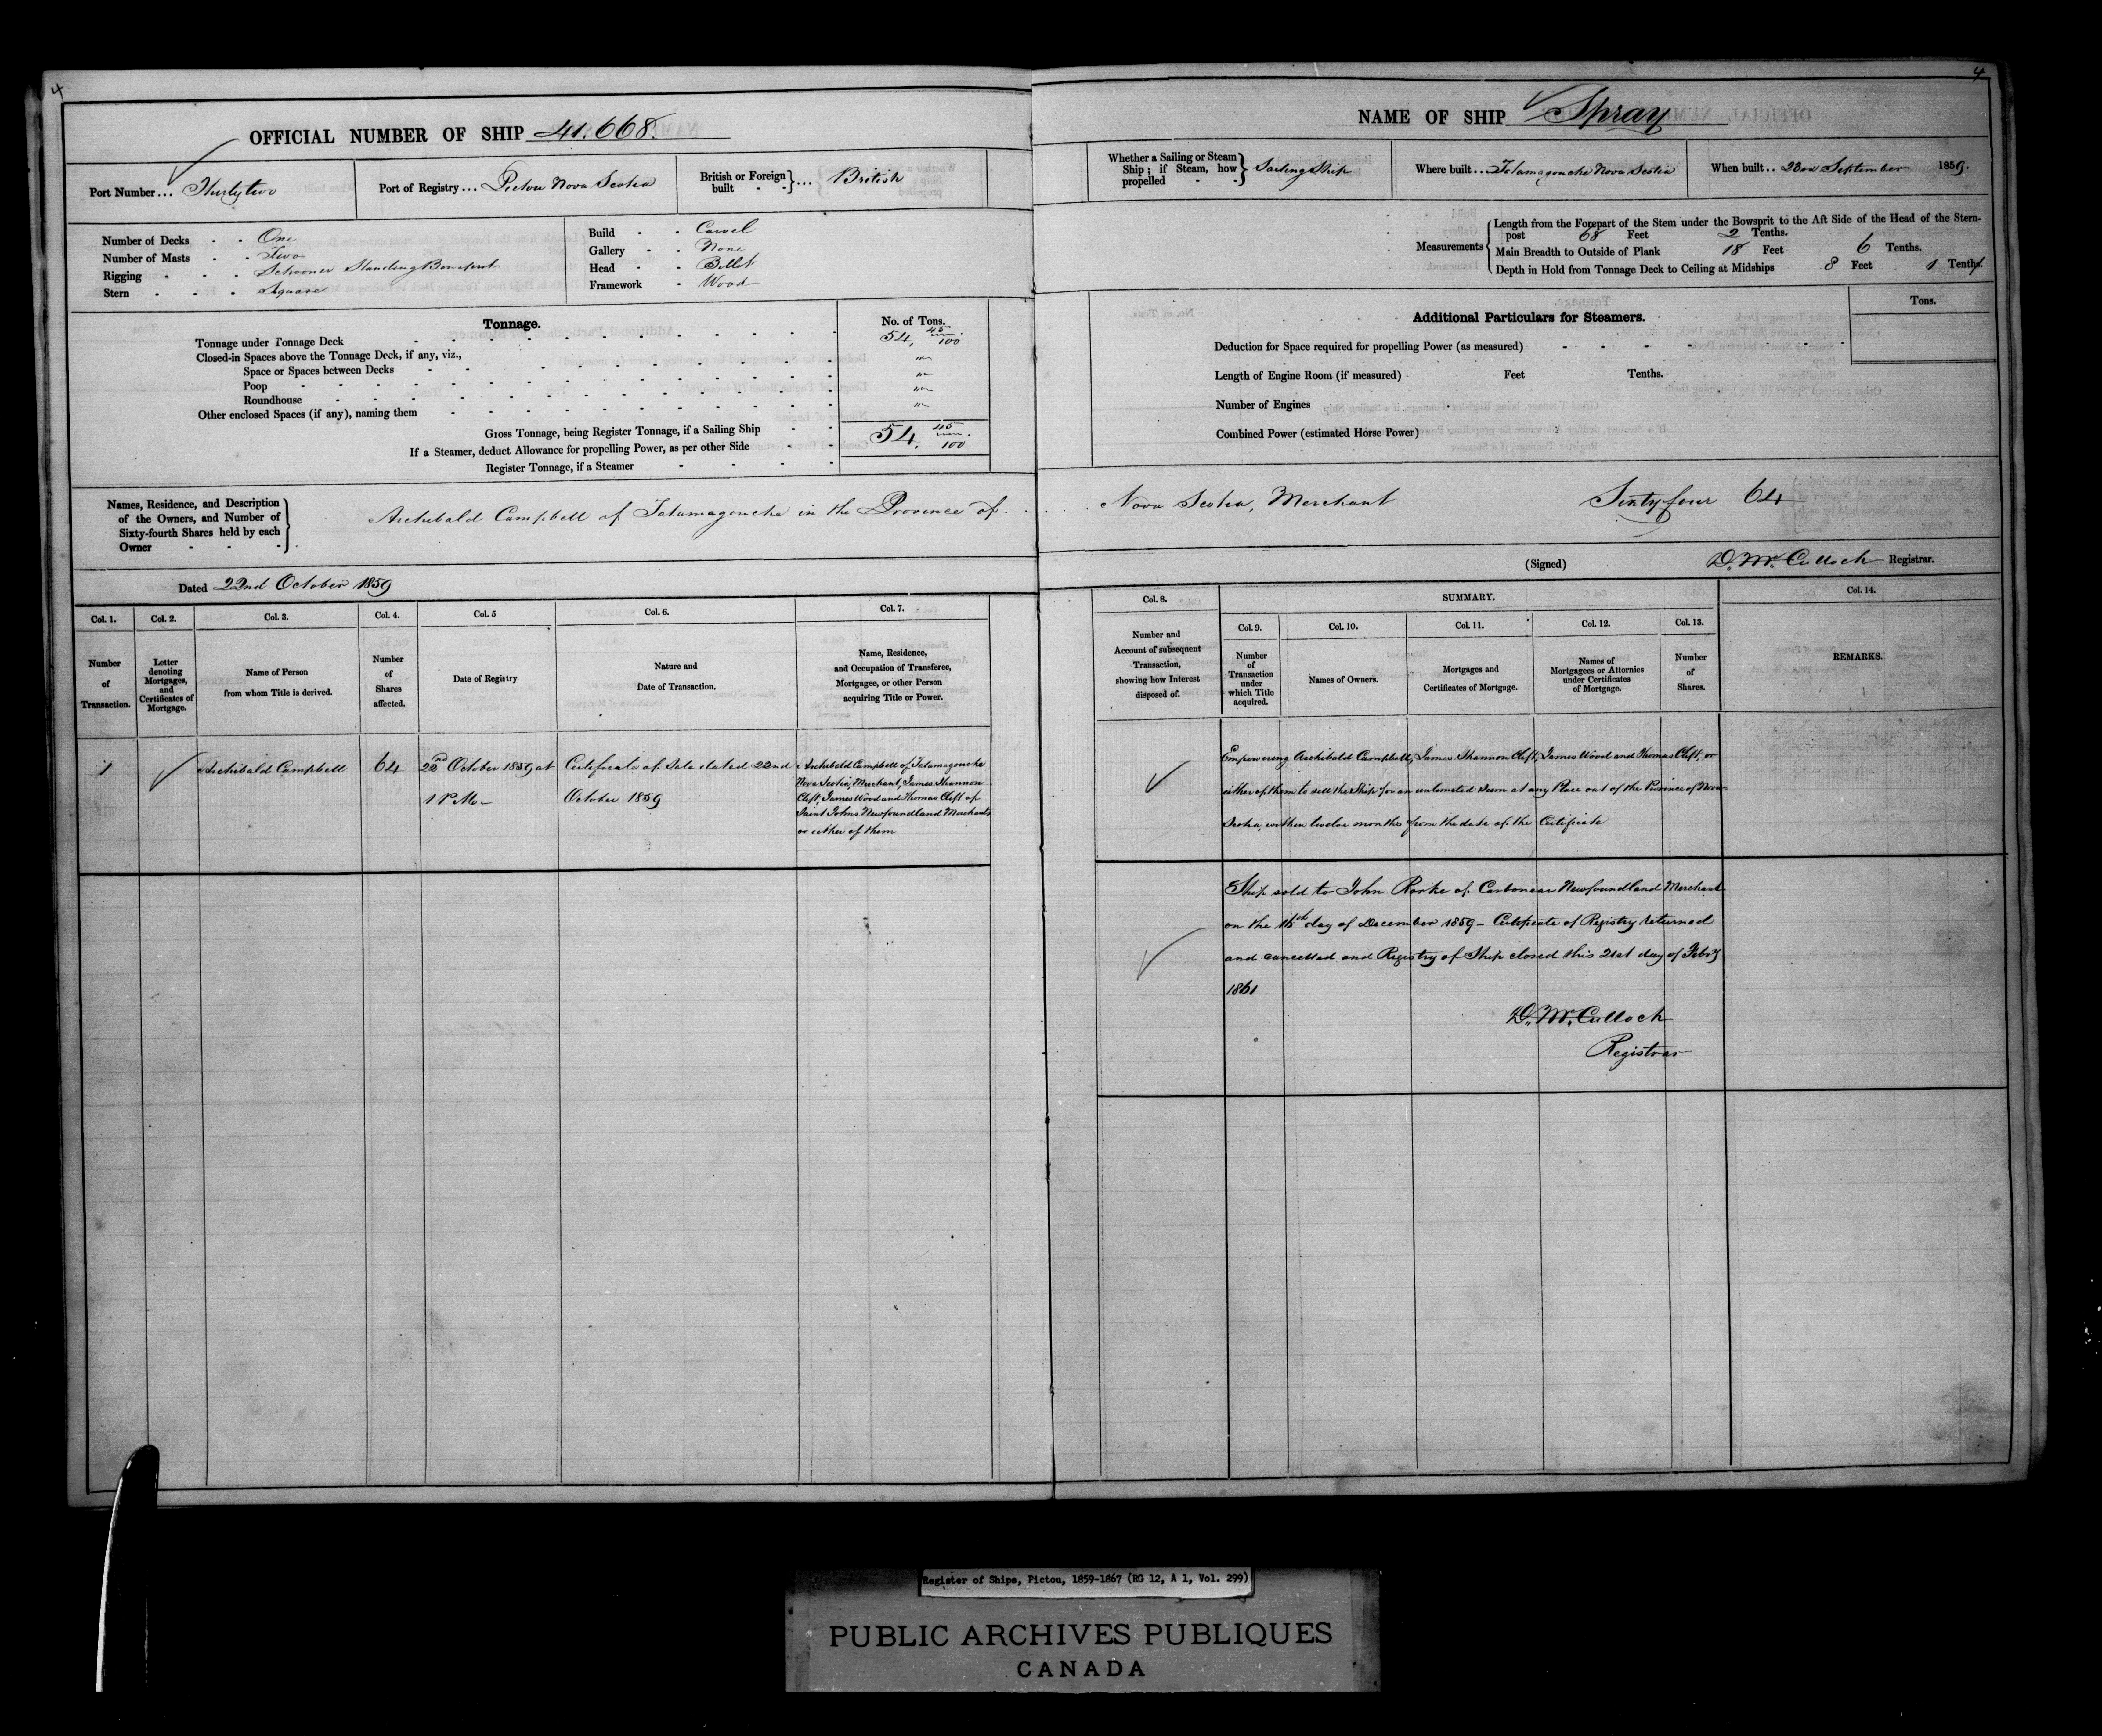 4
OFFICIAL NUMBER OF SHIP 41.668.
Port Number... Thirty two
Port of Registry... Pictou Nova Scotia
British or Foreign built - - }... British
Number of Decks - - One
Number of Masts - - Two
Rigging - - - Schooner Standing Bowsprit
Stern - - - Square
Build - - Carvel
Gallery - - None
Head - - Billet
Framework - Wood
Tonnage.
No. of Tons.
Tonnage under Tonnage Deck 54, 45/100
Closed-in Spaces above the Tonnage Deck, if any, viz.,
Space or Spaces between Decks
Poop
Roundhouse
Other enclosed Spaces (if any), naming them
Gross Tonnage, being Register Tonnage, if a Sailing Ship 54. 45/100
If a Steamer, deduct Allowance for propelling Power, as per other Side
Register Tonnage, if a Steamer
Names, Residence, and Description
of the Owners, and Number of
Sixty-fourth Shares held by each
Owner
Archibald Campbell of Tatamagouche in the Province of
Dated 22nd October 1859
Col. 1. Col. 2. Col. 3. Col. 4. Col. 5 Col. 6. Col. 7.
Number of Transaction.
Letter denoting Mortgages, and Certificates of Mortgage.
Name of Person from whom Title is derived.
Number of Shares affected.
Date of Registry
Nature and Date of Transaction.
Name, Residence, and Occupation of Transferee, Mortgagee, or other Person acquiring Title or Power.
1
Archibald Campbell
64
22nd October 1859 at
1 P.M.
Certificate of Sale dated 22nd
October 1859
Archibald Campbell of Tatamagouche
Nova Scotia, Merchant, James Shannon
Clift, James Wood and Thomas Clift of
Saint Johns Newfoundland Merchants
or either of them
4
NAME OF SHIP Spray
Whether a Sailing or Steam Ship; if Steam, how propelled - } Sailing Ship
Where built... Tatamagouche Nova Scotia
When built.. 23rd September 1859.
Measurements
Length from the Forepart of the Stem under the Bowsprit to the Aft Side of the Head of the Stern-
post 68 Feet 2 Tenths.
Main Breadth to Outside of Plank 18 Feet 6 Tenths.
Depth in Hold from Tonnage Deck to Ceiling at Midships 8 Feet 1 Tenths.
Additional Particulars for Steamers.
Tons.
Deduction for Space required for propelling Power (as measured)
Length of Engine Room (if measured) Feet Tenths.
Number of Engines
Combined Power (estimated Horse Power)
Nova Scotia, Merchant Sixty four 64
(Signed) D. McCulloch Registrar.
Col. 8. SUMMARY. Col. 14.
Col. 9. Col. 10. Col. 11. Col. 12. Col. 13.
Number and Account of subsequent Transaction, showing how Interest disposed of.
Number of Transaction under which Title acquired.
Names of Owners.
Mortgages and Certificates of Mortgage.
Names of Mortgagees or Attornies under Certificates of Mortgage.
Number of Shares.
REMARKS.
Empowering Archibald Campbell, James Shannon Clift, James Wood and Thomas Clift, or
either of them to sell the Ship for an unlimited Sum at any Place out of the Province of Nova
Scotia, within twelve months from the date of the Certificate
Ship sold to John Rorke of Carbonear Newfoundland Merchant
on the 16th day of December 1859 - Certificate of Registry returned
and cancelled and Registry of Ship closed this 21st day of Feb'y
1861
D. McCulloch
Registrar
Register of Ships, Pictou, 1859-1867 (RG 12, A 1, Vol. 299)
PUBLIC ARCHIVES PUBLIQUES
CANADA